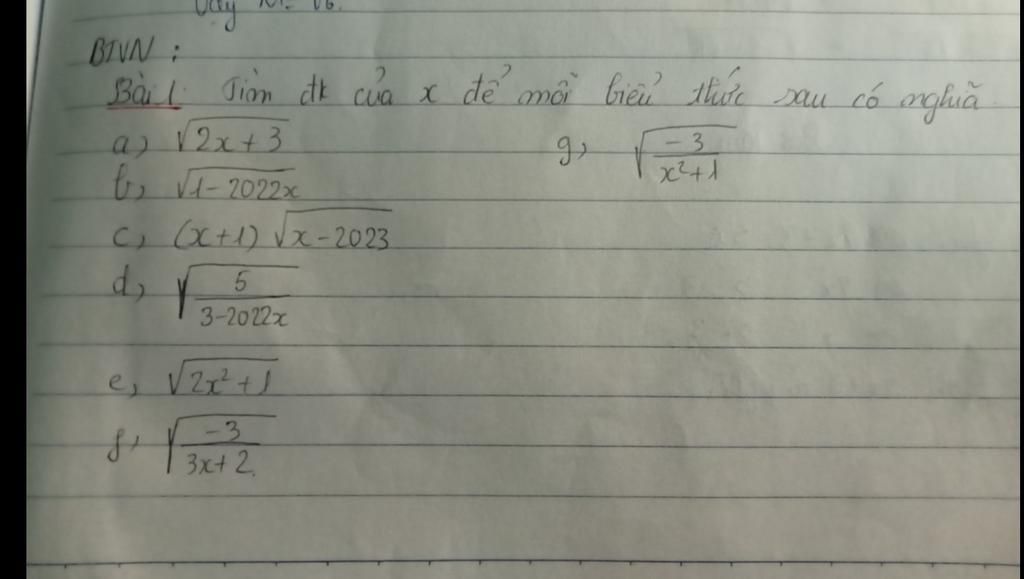 BTVN :
Bài 1: Tìm đk của x để mỗi biểu thức sau có nghĩa
a, √(2x+3)
g, √(-3/(x²+1))
b, √(1-2022x)
c, (x+1)√(x-2023)
d, √(5/(3-2022x))
e, √(2x²+1)
f, √(-3/(3x+2))